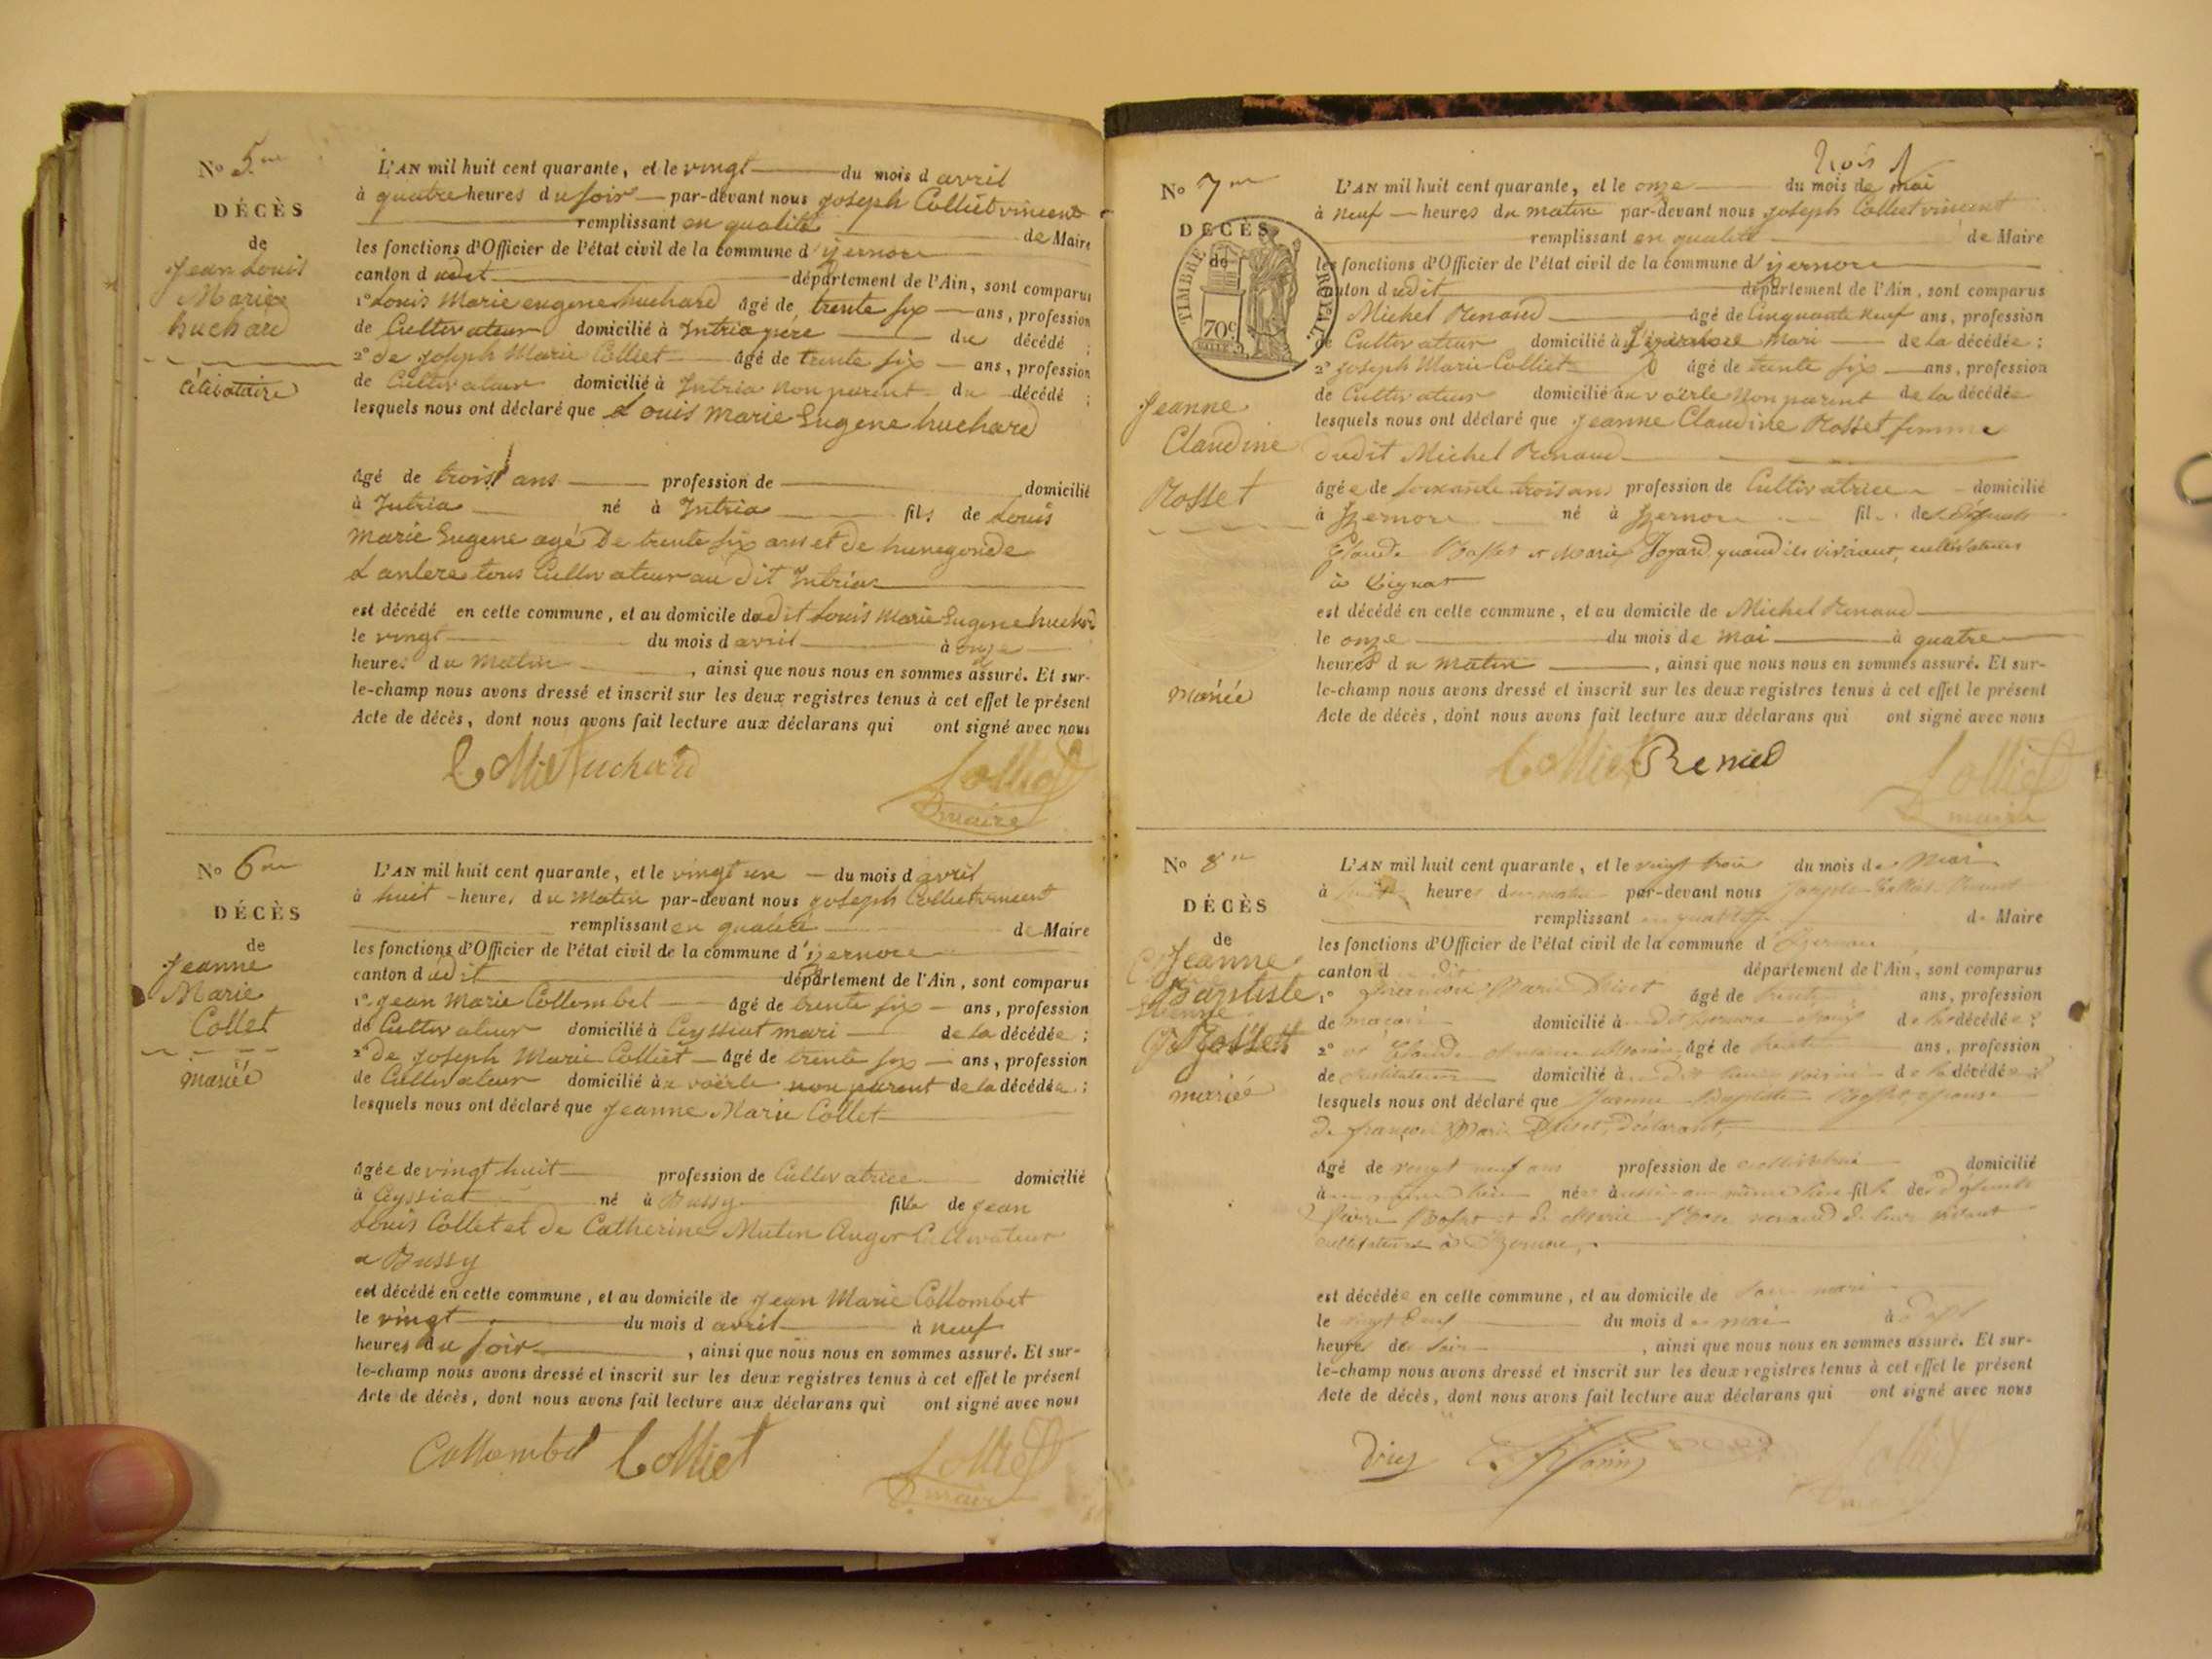 No 5me
DÉCÈS
de
Jean Louis
Marie
huchard
Célibataire
L'AN mil huit cent quarante, et le vingt du mois d avril
à quatre heures du soir par-devant nous joseph Colliet vincent
remplissant en qualité de Maire
les fonctions d'Officier de l'état civil de la commune d'izernore
canton dudit département de l'Ain, sont comparus
1° Louis Marie eugene huchard âgé de trente six ans, profession
de Cultivateur domicilié à Intria père du décédé ;
2° de joseph Marie Colliet âgé de trente six ans, profession
de Cultivateur domicilié à Intria non parent du décédé ;
lesquels nous ont déclaré que Louis Marie Eugene huchard
âgé de trois ans profession de domicilié
à Intria né à Intria fils de Louis
Marie Eugene agé De trente six ans et de hunegonde
tous Cultivateur au dit Intria
est décédé en cette commune, et au domicile dudit Louis Marie Eugene huchard
le vingt du mois d avril à onze
heures du Matin, ainsi que nous nous en sommes assuré. Et sur-
le-champ nous avons dressé et inscrit sur les deux registres tenus à cet effet le présent
Acte de décès, dont nous avons fait lecture aux déclarans qui ont signé avec nous
Colliet huchard Colliet
maire
No 6me
DÉCÈS
de
Jeanne
Marie
Collet
mariée
L'AN mil huit cent quarante, et le vingt un du mois d avril
à huit heures du Matin par-devant nous joseph Colliet vincent
remplissant en qualité de Maire
les fonctions d'Officier de l'état civil de la commune d'izernore
canton dudit département de l'Ain, sont comparus
1° jean Marie Collombet âgé de trente six ans, profession
de Cultivateur domicilié à Ceyssiat mari de la décédée ;
2° de joseph Marie Colliet âgé de trente six ans, profession
de Cultivateur domicilié à voërle non parent de la décédée ;
lesquels nous ont déclaré que jeanne Marie Collet
âgée de vingt huit profession de Cultivatrice domicilié
à Ceyssiat né à Bussy fille de jean
Louis Collet et de Catherine Mutin Auger Cultivateur
a Bussy
est décédé en cette commune, et au domicile de jean Marie Collombet
le vingt du mois d avril à neuf
heures du soir, ainsi que nous nous en sommes assuré. Et sur-
le-champ nous avons dressé et inscrit sur les deux registres tenus à cet effet le présent
Acte de décès, dont nous avons fait lecture aux déclarans qui ont signé avec nous
Collombet Colliet Colliet
maire
trois
No 7me
DÉCÈS
de
TIMBRE ROYAL
70c
Jeanne
Claudine
Rosset
mariée
L'AN mil huit cent quarante, et le onze du mois de mai
à neuf heures du matin par-devant nous joseph Colliet vincent
remplissant en qualité de Maire
les fonctions d'Officier de l'état civil de la commune d'izernore
canton dudit département de l'Ain, sont comparus
Michel Renaud âgé de Cinquante neuf ans, profession
de Cultivateur domicilié à izernore mari de la décédée ;
2° joseph Marie Colliet âgé de trente six ans, profession
de Cultivateur domicilié à voërle non parent de la décédée
lesquels nous ont déclaré que jeanne Claudine Rosset femme
dudit Michel Renaud
âgée de soixante trois ans profession de Cultivatrice domicilié
à izernore né à izernore fil de défunts
Claude Rosset et Marie Joyard quand ils vivaient, cultivateurs
à
est décédé en cette commune, et au domicile de Michel Renaud
le onze du mois de mai à quatre
heures du matin, ainsi que nous nous en sommes assuré. Et sur-
le-champ nous avons dressé et inscrit sur les deux registres tenus à cet effet le présent
Acte de décès, dont nous avons fait lecture aux déclarans qui ont signé avec nous
Colliet Renaud Colliet
maire
No 8me
DÉCÈS
de
Jeanne
Baptiste
Rosset
mariée
L'AN mil huit cent quarante, et le vingt trois du mois de Mai
à huit heures du matin par-devant nous
remplissant en qualité de Maire
les fonctions d'Officier de l'état civil de la commune d'izernore
canton dudit département de l'Ain, sont comparus
1° Marie âgé de ans, profession
de maçon domicilié à de la décédée ;
2° Claude âgé de trente ans, profession
de domicilié à de la décédée
lesquels nous ont déclaré que Jeanne Baptiste Rosset épouse
de françois Marie déclarant,
âgé de vingt neuf ans profession de cultivatrice domicilié
à née fille de défunts
Pierre Rosset et de Marie Renaud de leur vivant
cultivateurs à izernore,
est décédée en cette commune, et au domicile de son mari
le du mois de mai à
heures du soir, ainsi que nous nous en sommes assuré. Et sur-
le-champ nous avons dressé et inscrit sur les deux registres tenus à cet effet le présent
Acte de décès, dont nous avons fait lecture aux déclarans qui ont signé avec nous
Colliet